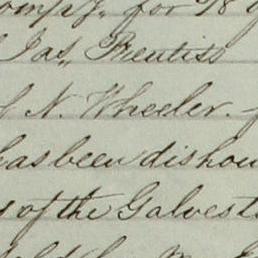 for 78
Jas, Prentiss
N. Wheeler.
has been dishon
of the Galvest